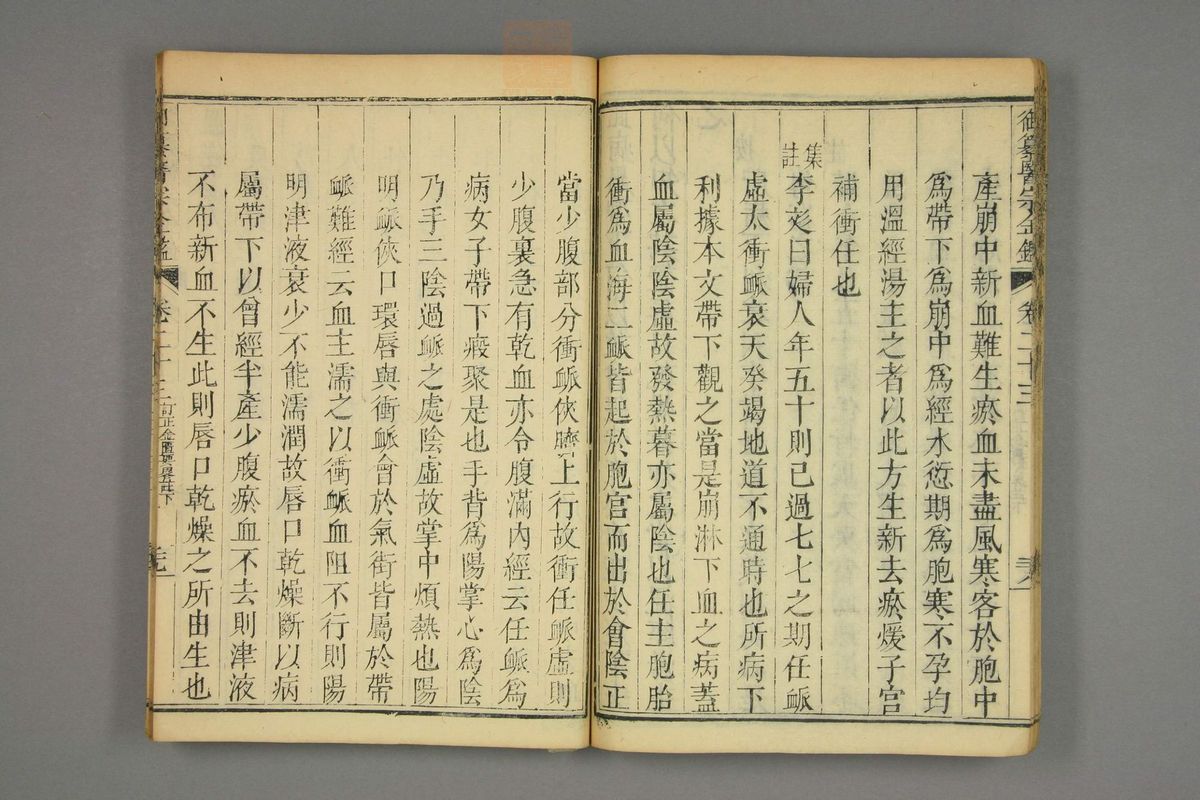 御纂醫宗金鑑 卷二十三
產崩中新血難生瘀血未盡風寒客於胞中
爲帶下爲崩中爲經水愆期爲胞寒不孕均
用溫經湯主之者以此方生新去瘀煖子宮
補衝任也
集註
李彣曰婦人年五十則已過七七之期任脈
虛太衝脈衰天癸竭地道不通時也所病下
利據本文帶下觀之當是崩淋下血之病蓋
血屬陰陰虛故發熱暮亦屬陰也任主胞胎
衝爲血海二脈皆起於胞宮而出於會陰正
當少腹部分衝脈俠臍上行故衝任脈虛則
少腹裏急有乾血亦令腹滿內經云任脈爲
病女子帶下瘕聚是也手背爲陽掌心爲陰
乃手三陰過脈之處陰虛故掌中煩熱也陽
明脈俠口環唇與衝脈會於氣街皆屬於帶
脈難經云血主濡之以衝脈血阻不行則陽
明津液衰少不能濡潤故唇口乾燥斷以病
屬帶下以曾經半產少腹瘀血不去則津液
不布新血不生此則唇口乾燥之所由生也